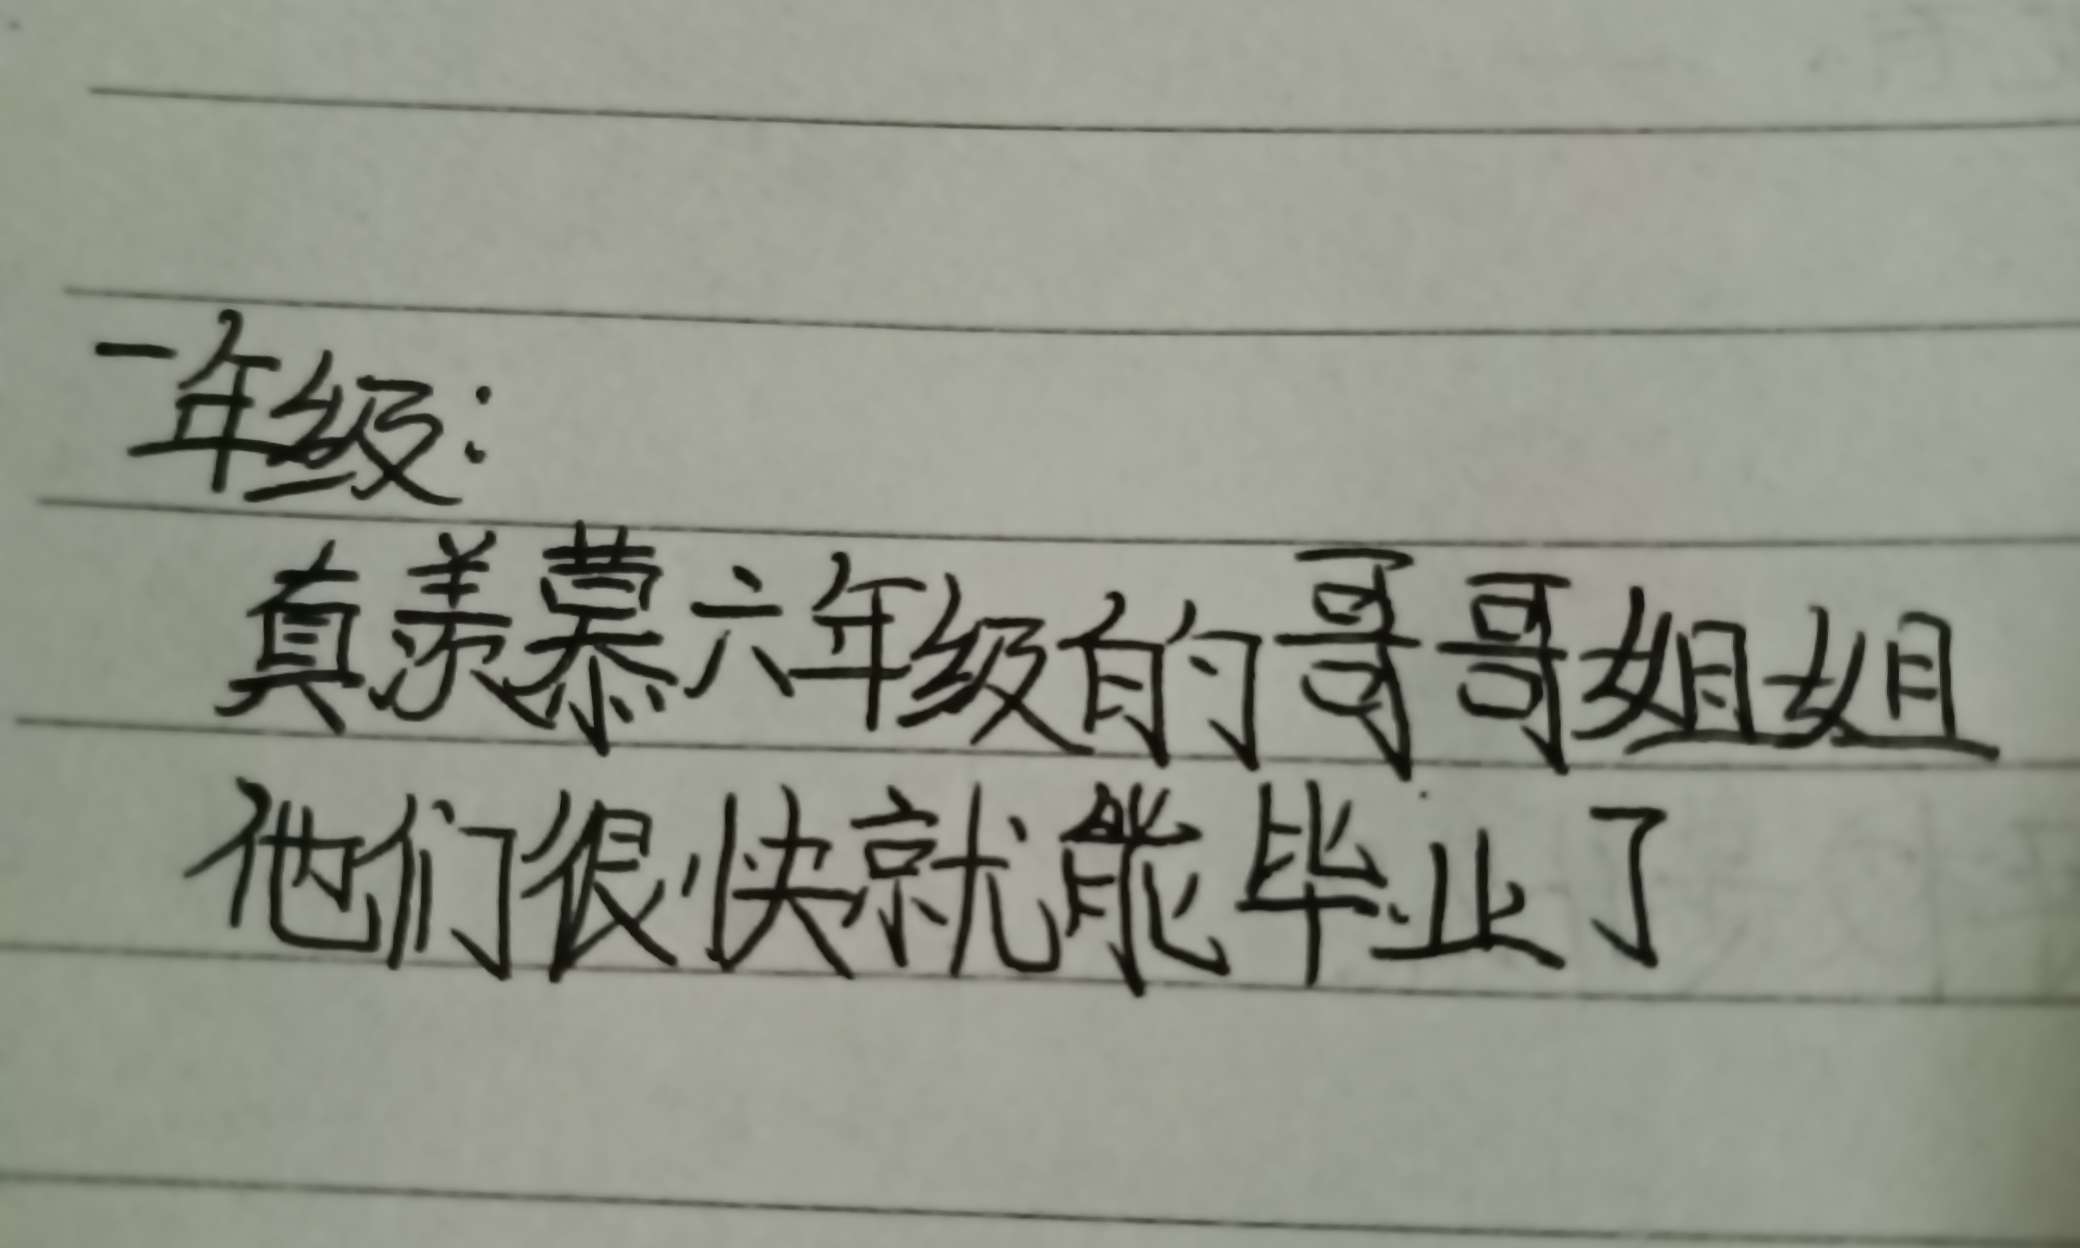 一年级:
真羡慕六年级的哥哥姐姐
他们很快就能毕业了